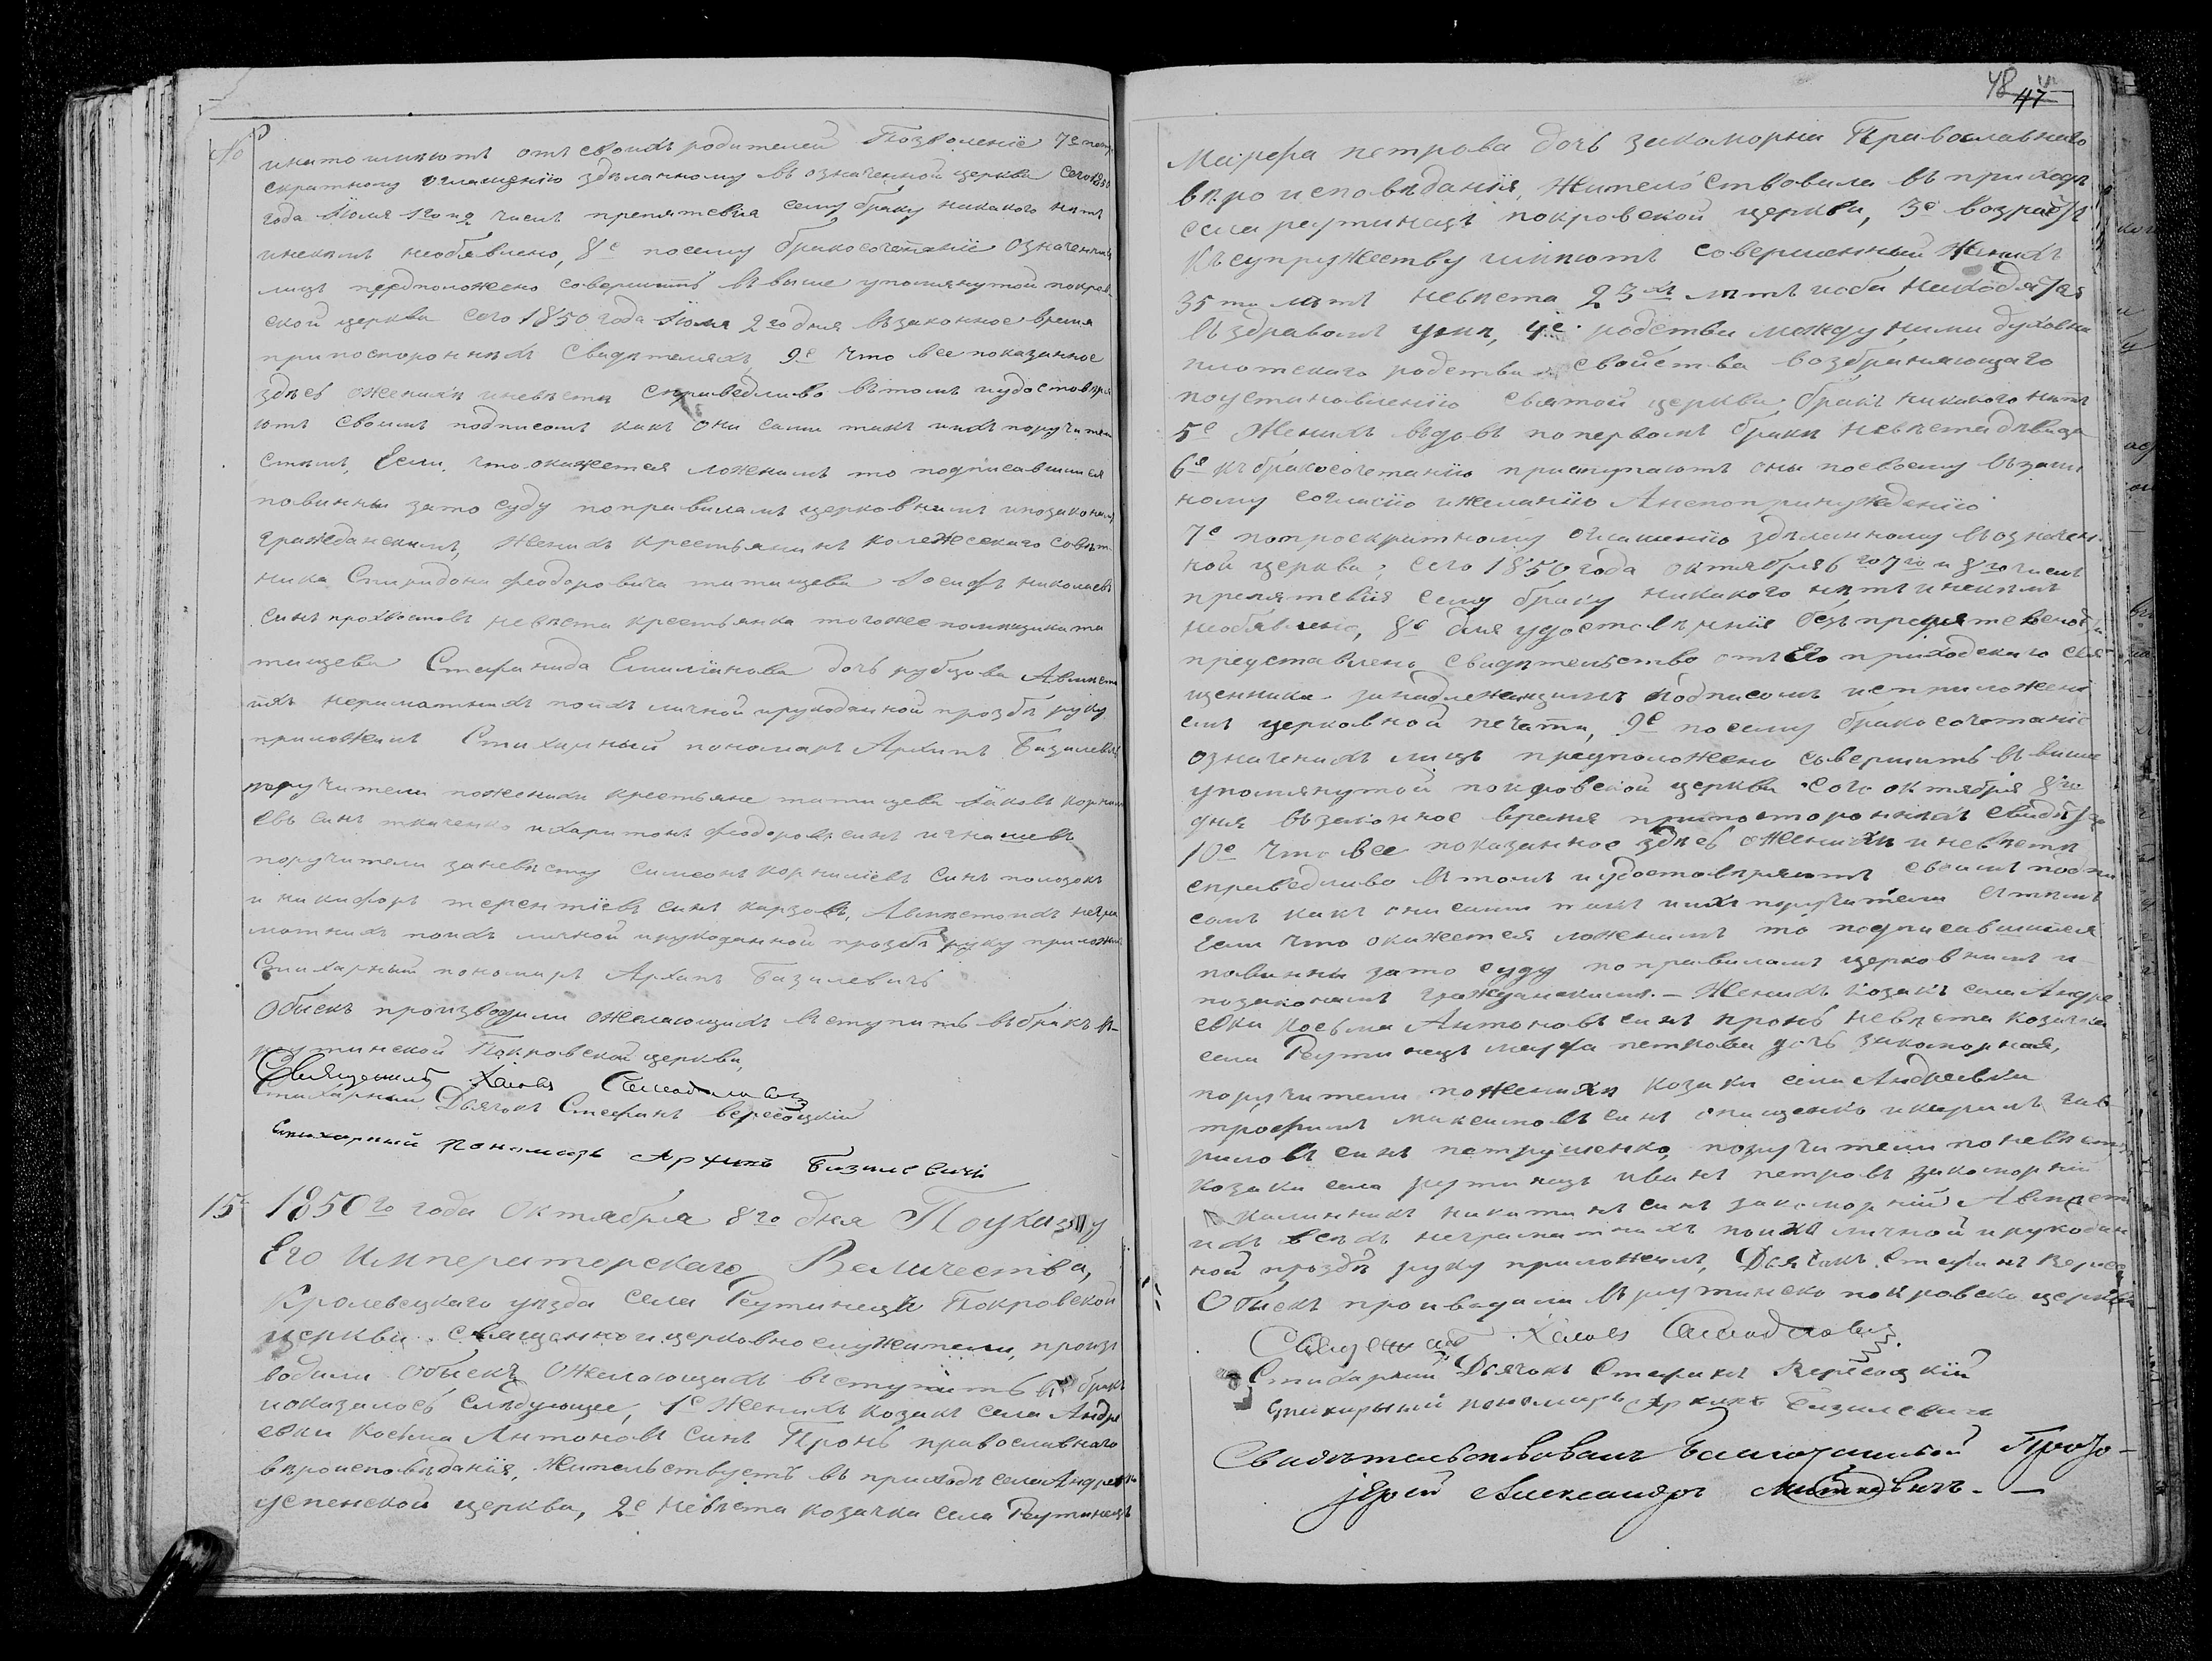 №
и имѣютъ отъ своихъ родителей Позволеніе 7е по
скратному оглашенію здѣланному въ означенной церкви сего 1850
года Іюля 1го и 2 числъ препятствія сему браку никакого нѣтъ
и некѣмъ необявлено, 8е посему бракосочетаніе означеннихъ
лицъ предположено совершитъ въ выше упомянутой покров-
ской церкви сего 1850 года Іюля 2го дня въ законное время
припосторонныхъ свидѣтеляхъ, 9е что все показанное
здѣсь ожених и невѣста справедливо въ томъ и удостовѣря
ютъ своимъ подписомъ какъ они сами такъ и ихъ поручители
стѣмъ, Если что окажется ложнимъ то подписавшиися
повинны зато суду поправиламъ церковнимъ и позаконамъ
гражданскимъ, Женихъ крестьянинъ колежского совѣт
ника Спиридона феодоровича татищева Іосифъ николаевъ
синъ прохвостовъ невѣста крестьянка тогоже помещика та
тищева Стефанида Емиліянова дочь рубцова Авмѣсто
ихъ неграматнихъ поихъ личной ирукоданной прозбѣ руку
приложилъ Стихарный пономарь Архипъ Базилевичъ
поручители пожениху крестьяне татищева Іаковъ корнилі
евъ синъ ткаченко ихаритонъ феодоровъ синъ игнашевъ
поручители заневѣсту симеонъ корниліевъ синъ полозокъ
и никифоръ терентіевъ синъ карзовъ, Авмѣстоихъ негра
матнихъ поихъ личной ирукоданной прозбѣ руку приложилъ
Стихарный пономарь Архипъ Базилевичъ
Обискъ производили ожелающихъ вступить въ бракъ в-
реутинской Покровской церкви,
Священникъ
Стихарный Дьячокъ Стефанъ Вересоцкій
стихарный пономарь Архипъ Базилевичъ
15. 1850го года Октября 8го дня По указу
Его Императорскаго Величества,
Кролевецкаго уѣзда села Реутинецъ Покровской
церкви священно и церковнослужители, произ
водили обискъ ожелающихъ вступить въ бракъ
и оказалось слѣдующее, 1е Женихъ козакъ села Андре
евки Косьма Антоновъ синъ Пронь православнаго
вѣроисповѣданія, жительствуетъ въ приходѣ села Андреевки
успенской церкви, 2е Невѣста козачка села Реутинецъ
48
47
Марфа петрова дочь закоморная Православнаго
вѣроисповѣданія, жительствовала въ приходѣ
села реутинецъ покровской церкви, 3е возрастъ
къ супружеству имѣютъ совершенный Женихъ
35ти лѣтъ невѣста 23хъ лѣтъ иоба находятся
въ здравомъ умѣ, 4е родства между ними духовна
плотскаго родства свойства возбраняющаго
поустановленію святой церкви, бракъ никакого нѣтъ
5е Женихъ вдовъ поперломъ бракѣ невѣста дѣвица
6е къ бракосочетанію приступаютъ они посвоему взаим
ному согласію ижеланію Анепопринужденію
7е потроекратному оглашенію здѣланному въ означен-
ной церкви, сего 1850 года октября 6го 7го и 8го числъ
препятствія сему браку никакого нѣтъ и некѣмъ
необявлено, 8е для удостовѣренія безпрепятственности
представлено свидѣтельство отъ Его приходскаго свя-
щенника занадлежащимъ подписомъ исприложені
емъ церковной печати, 9е посему бракосочетаніе
означенихъ лицъ предположено совершить въ више
упомянутой покровской церкви сего октября 8го
дня въ законное время припостороннихъ свидѣтеляхъ
10е Что все показанное здѣсь ожениха и невѣсти
справедливо въ томъ и удостовѣряютъ своимъ подпи
сомъ какъ они сами такъ и ихъ поручители стѣмъ
Если что окажется ложнимъ то подписавшиися
повинны зато суду поправиламъ церковнимъ и
позаконамъ гражданскимъ. — Женихъ козакъ села Андре
евки косьма Антоновъ синъ пронь невѣста козачка
села Реутинецъ марфа петрова дочь закоморная,
поручители пожениху козаки села Андреевки
трофимъ максимовъ синъ онищенко икирилъ гав-
риловъ синъ петрушенко, поручители поневѣсти
козаки села реутинецъ иванъ петровъ закоморній
калинникъ никитинъ синъ закоморній Авмѣсто
ихъ всѣхъ неграматнихъ поихъ личной ирукодан
ной прозбѣ руку приложилъ, Дьячокъ Стефанъ Верес
Обискъ производили въ реутинско покровско церкви
Священникъ
Стихарний Дьячокъ Стефанъ Вересоцкій
стихарный пономарь Архипъ Базилевичъ
Свидѣтельствовалъ Благочинный Прото-
іерей Александръ